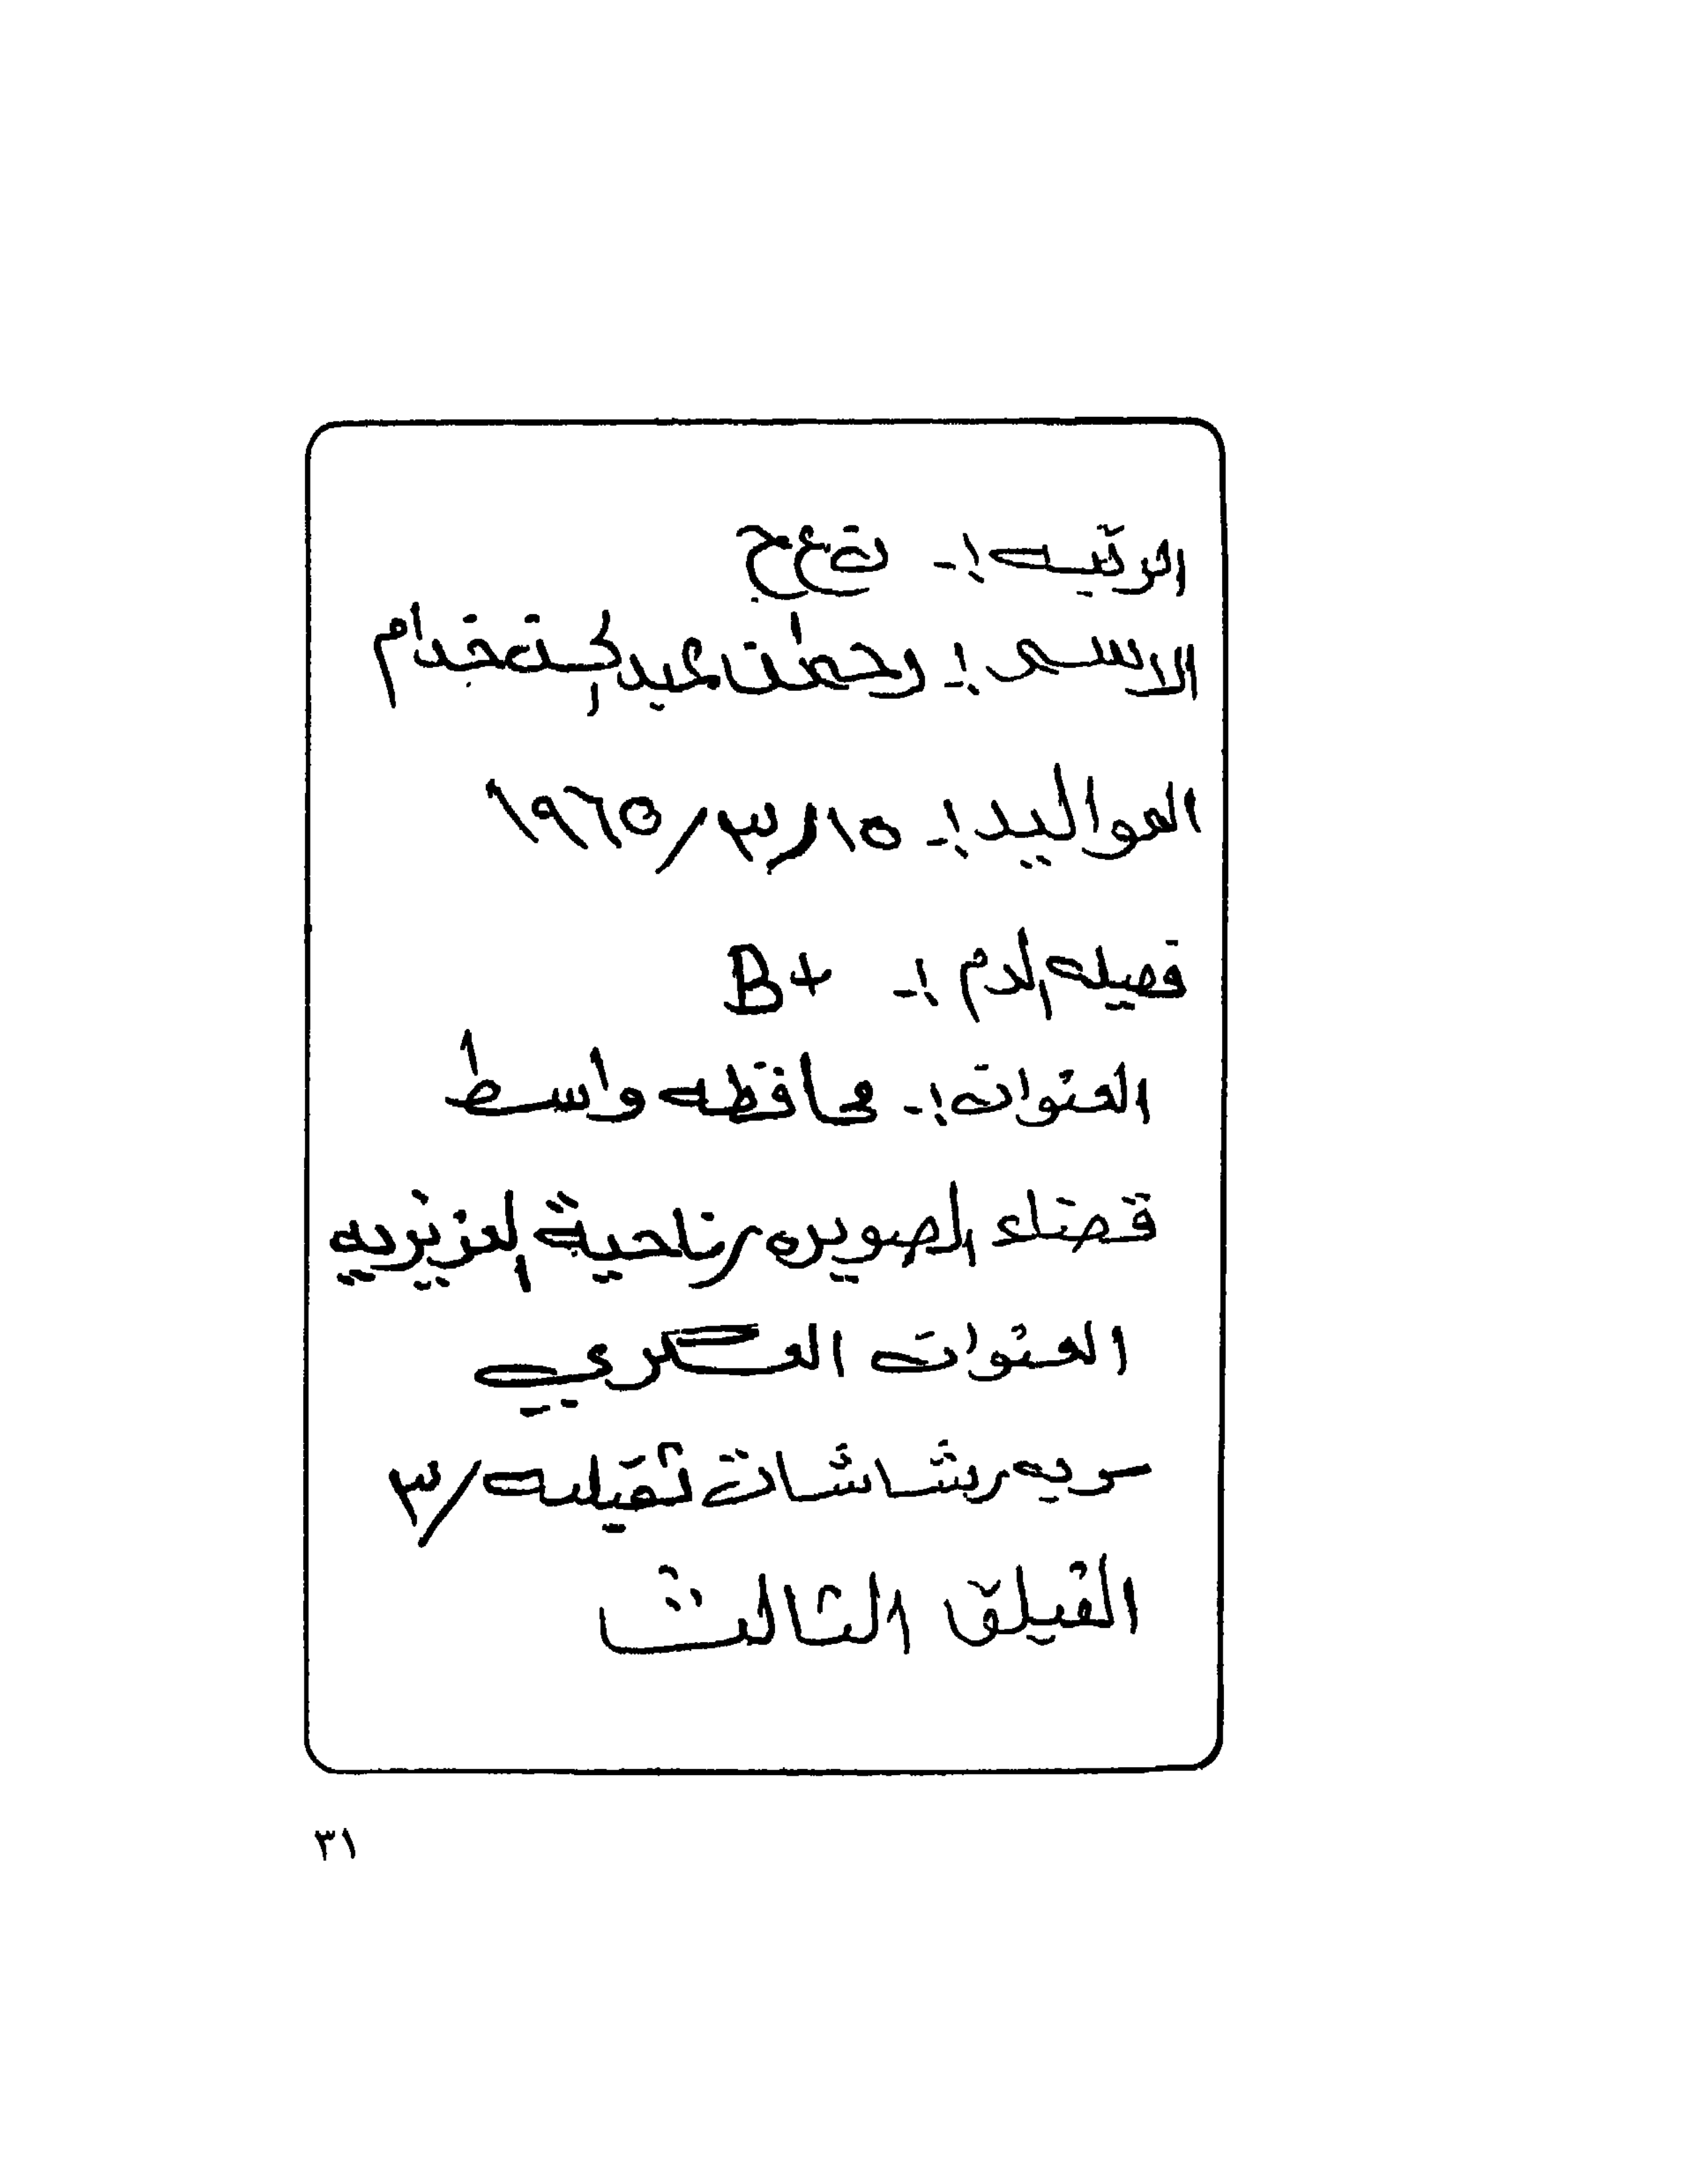 الرتبه :- ن ع ح
الاسم :- رحمان عبد الحسن خدام
المواليد :- ١٥/٣/١٩٦٥
فصيله الدم :- B+
العنوان :- محافظه واسط
قضاء الصويره / ناحية العزيزيه
العنوان العسكري
سريه رشاشات ثقيله /٣
الفيلق الثالث
٣١